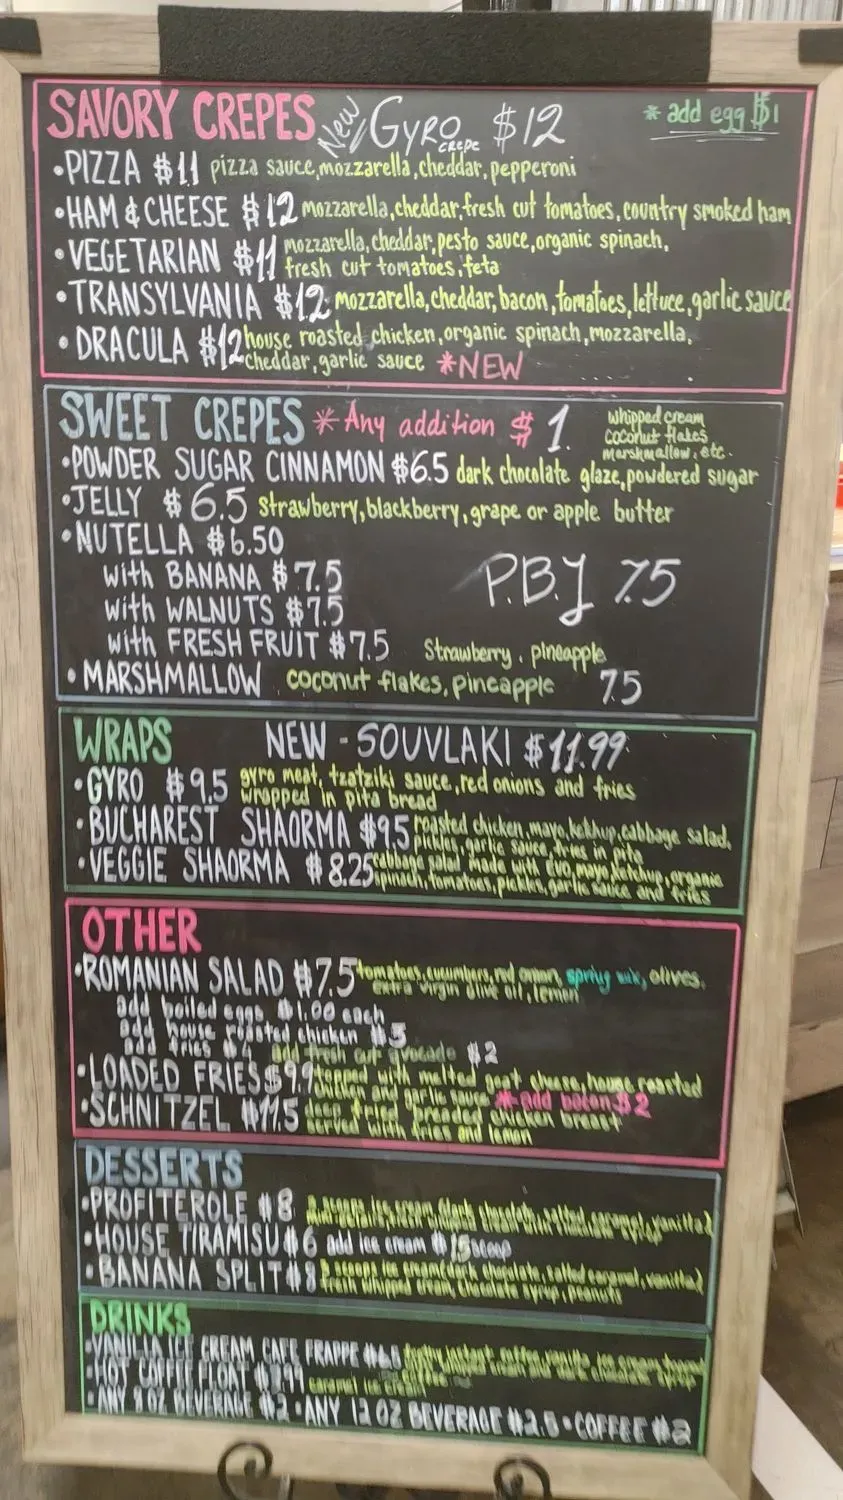 SAVORY CREPES New GYRO crepe $12 * add egg $1
•PIZZA $11 pizza sauce, mozzarella, cheddar, pepperoni
•HAM & CHEESE $12 mozzarella, cheddar, fresh cut tomatoes, country smoked ham
•VEGETARIAN $11 mozzarella, cheddar, pesto sauce, organic spinach,
fresh cut tomatoes, feta
•TRANSYLVANIA $12 mozzarella, cheddar, bacon, tomatoes, lettuce, garlic sauce
•DRACULA $12 house roasted chicken, organic spinach, mozzarella,
cheddar, garlic sauce *NEW
SWEET CREPES * Any addition $1.
whipped cream
coconut flakes
marshmallow, etc.
•POWDER SUGAR CINNAMON $6.5 dark chocolate glaze, powdered sugar
•JELLY $6.5 strawberry, blackberry, grape or apple butter
•NUTELLA $6.50
with BANANA $7.5
P.B.J 7.5
with WALNUTS $7.5
with FRESH FRUIT $7.5 Strawberry, pineapple
•MARSHMALLOW coconut flakes, pineapple 7.5
WRAPS NEW - SOUVLAKI $11.99
•GYRO $9.5 gyro meat, tzatziki sauce, red onions and fries
wrapped in pita bread
•BUCHAREST SHAORMA $9.5 roasted chicken, mayo, ketchup, cabbage salad,
pickles, garlic sauce, fries in pita
•VEGGIE SHAORMA $8.25 cabbage salad made with EVO, mayo, ketchup, organic
spinach, tomatoes, pickles, garlic sauce and fries
OTHER
•ROMANIAN SALAD $7.5 tomatoes, cucumbers, red onion, spring mix, olives,
extra virgin olive oil, lemon
add boiled eggs $1.00 each
add house roasted chicken
add fries $4 add fresh cut avocado $2
•LOADED FRIES $9.9 topped with melted goat cheese, house roasted
chicken and garlic sauce *add bacon $2
•SCHNITZEL $11.5 deep fried breaded chicken breast
served with fries and lemon
DESSERTS
•PROFITEROLE $8 scoops ice cream, dark chocolate, salted caramel, vanilla
•HOUSE TIRAMISU $6 add ice cream scoop
•BANANA SPLIT $8 scoops ice cream (dark chocolate, salted caramel, vanilla)
fresh whipped cream, chocolate syrup, peanuts
DRINKS
•VANILLA ICE CREAM CAFE FRAPPE
•HOT COFFEE FLOAT caramel ice cream
•ANY OZ BEVERAGE $2 •ANY 12 OZ BEVERAGE $2.5 •COFFEE $2